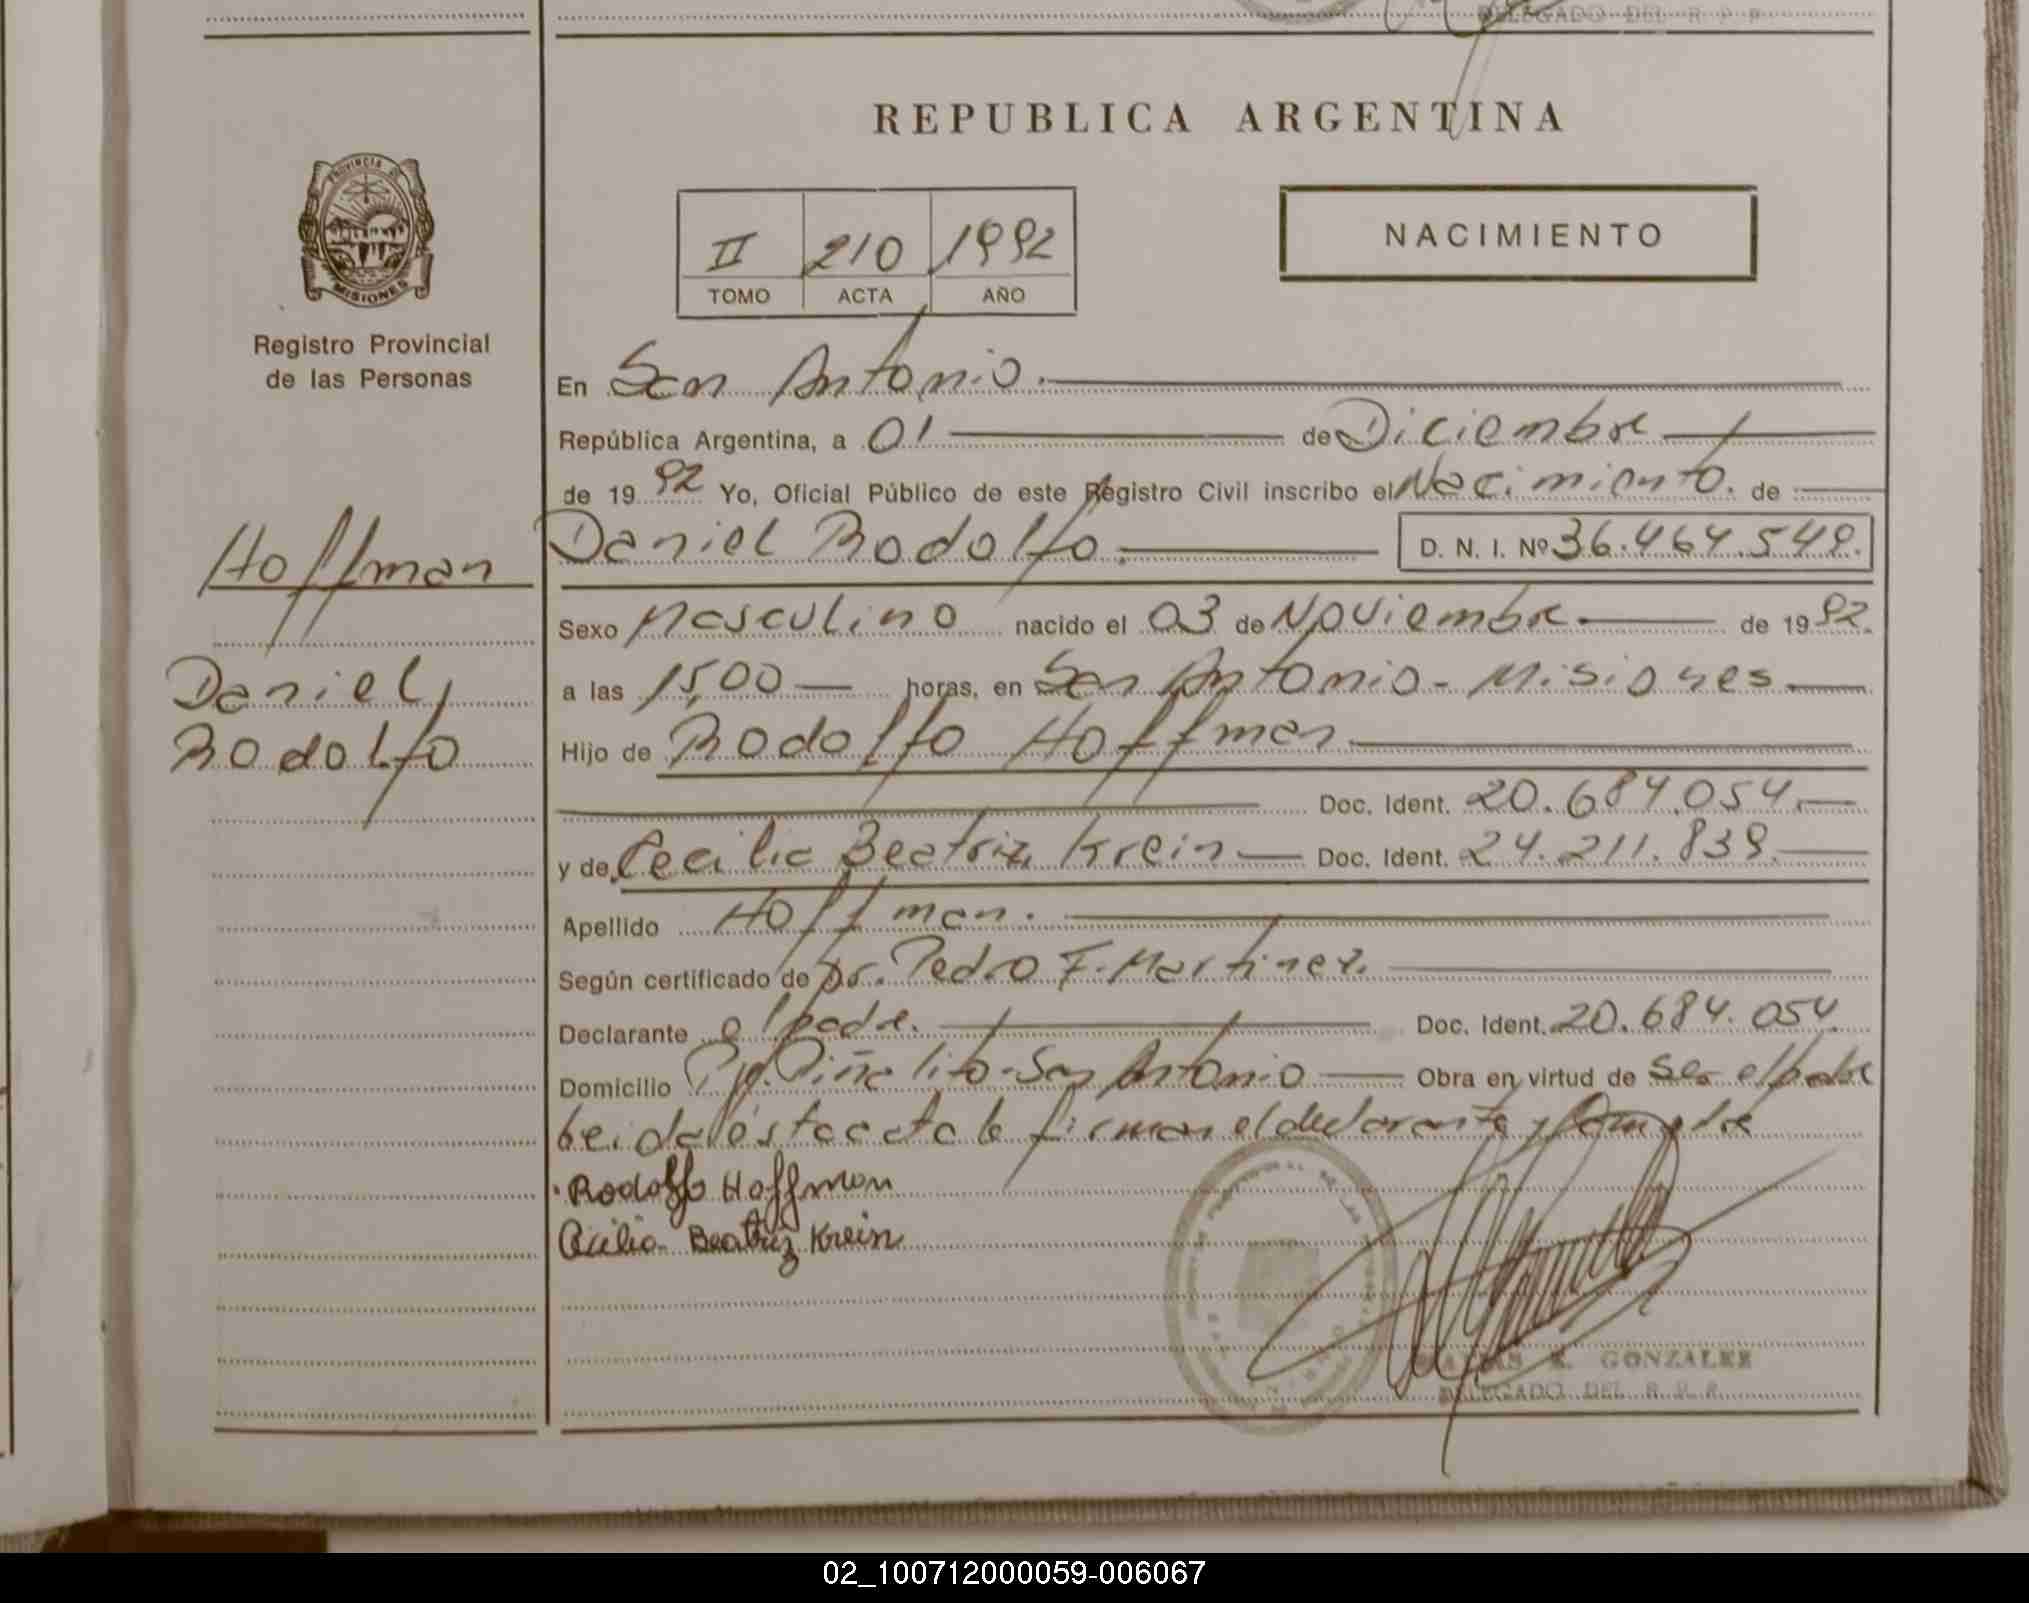 DELEGADO DEL R. P. P.
REPUBLICA ARGENTINA
PROVINCIA DE
MISIONES
Registro Provincial
de las Personas
II 210 1992
TOMO ACTA AÑO
NACIMIENTO
En San Antonio.
República Argentina, a 01 de Diciembre
de 1992 Yo, Oficial Público de este Registro Civil inscribo el Nacimiento. de
Hoffman
Daniel Rodolfo. D. N. I. Nº 36.464.549.
Sexo Masculino nacido el 03 de Noviembre de 1992.
Daniel
a las 15,00 horas, en San Antonio - Misiones
Rodolfo
Hijo de Rodolfo Hoffman
Doc. Ident. 20.684.054
y de Cecilia Beatriz Krein Doc. Ident. 24.211.839.
Apellido Hoffman.
Según certificado de Dr. Pedro F. Martinez.
Declarante el padre. Doc. Ident. 20.684.054
Domicilio Piñalito - San Antonio Obra en virtud de ser el padre
Leida ésta acta la firman el declarante y
Rodolfo Hoffman
Cecilia Beatriz Krein
GONZALEZ
DELEGADO DEL R. P. P.
02_100712000059-006067